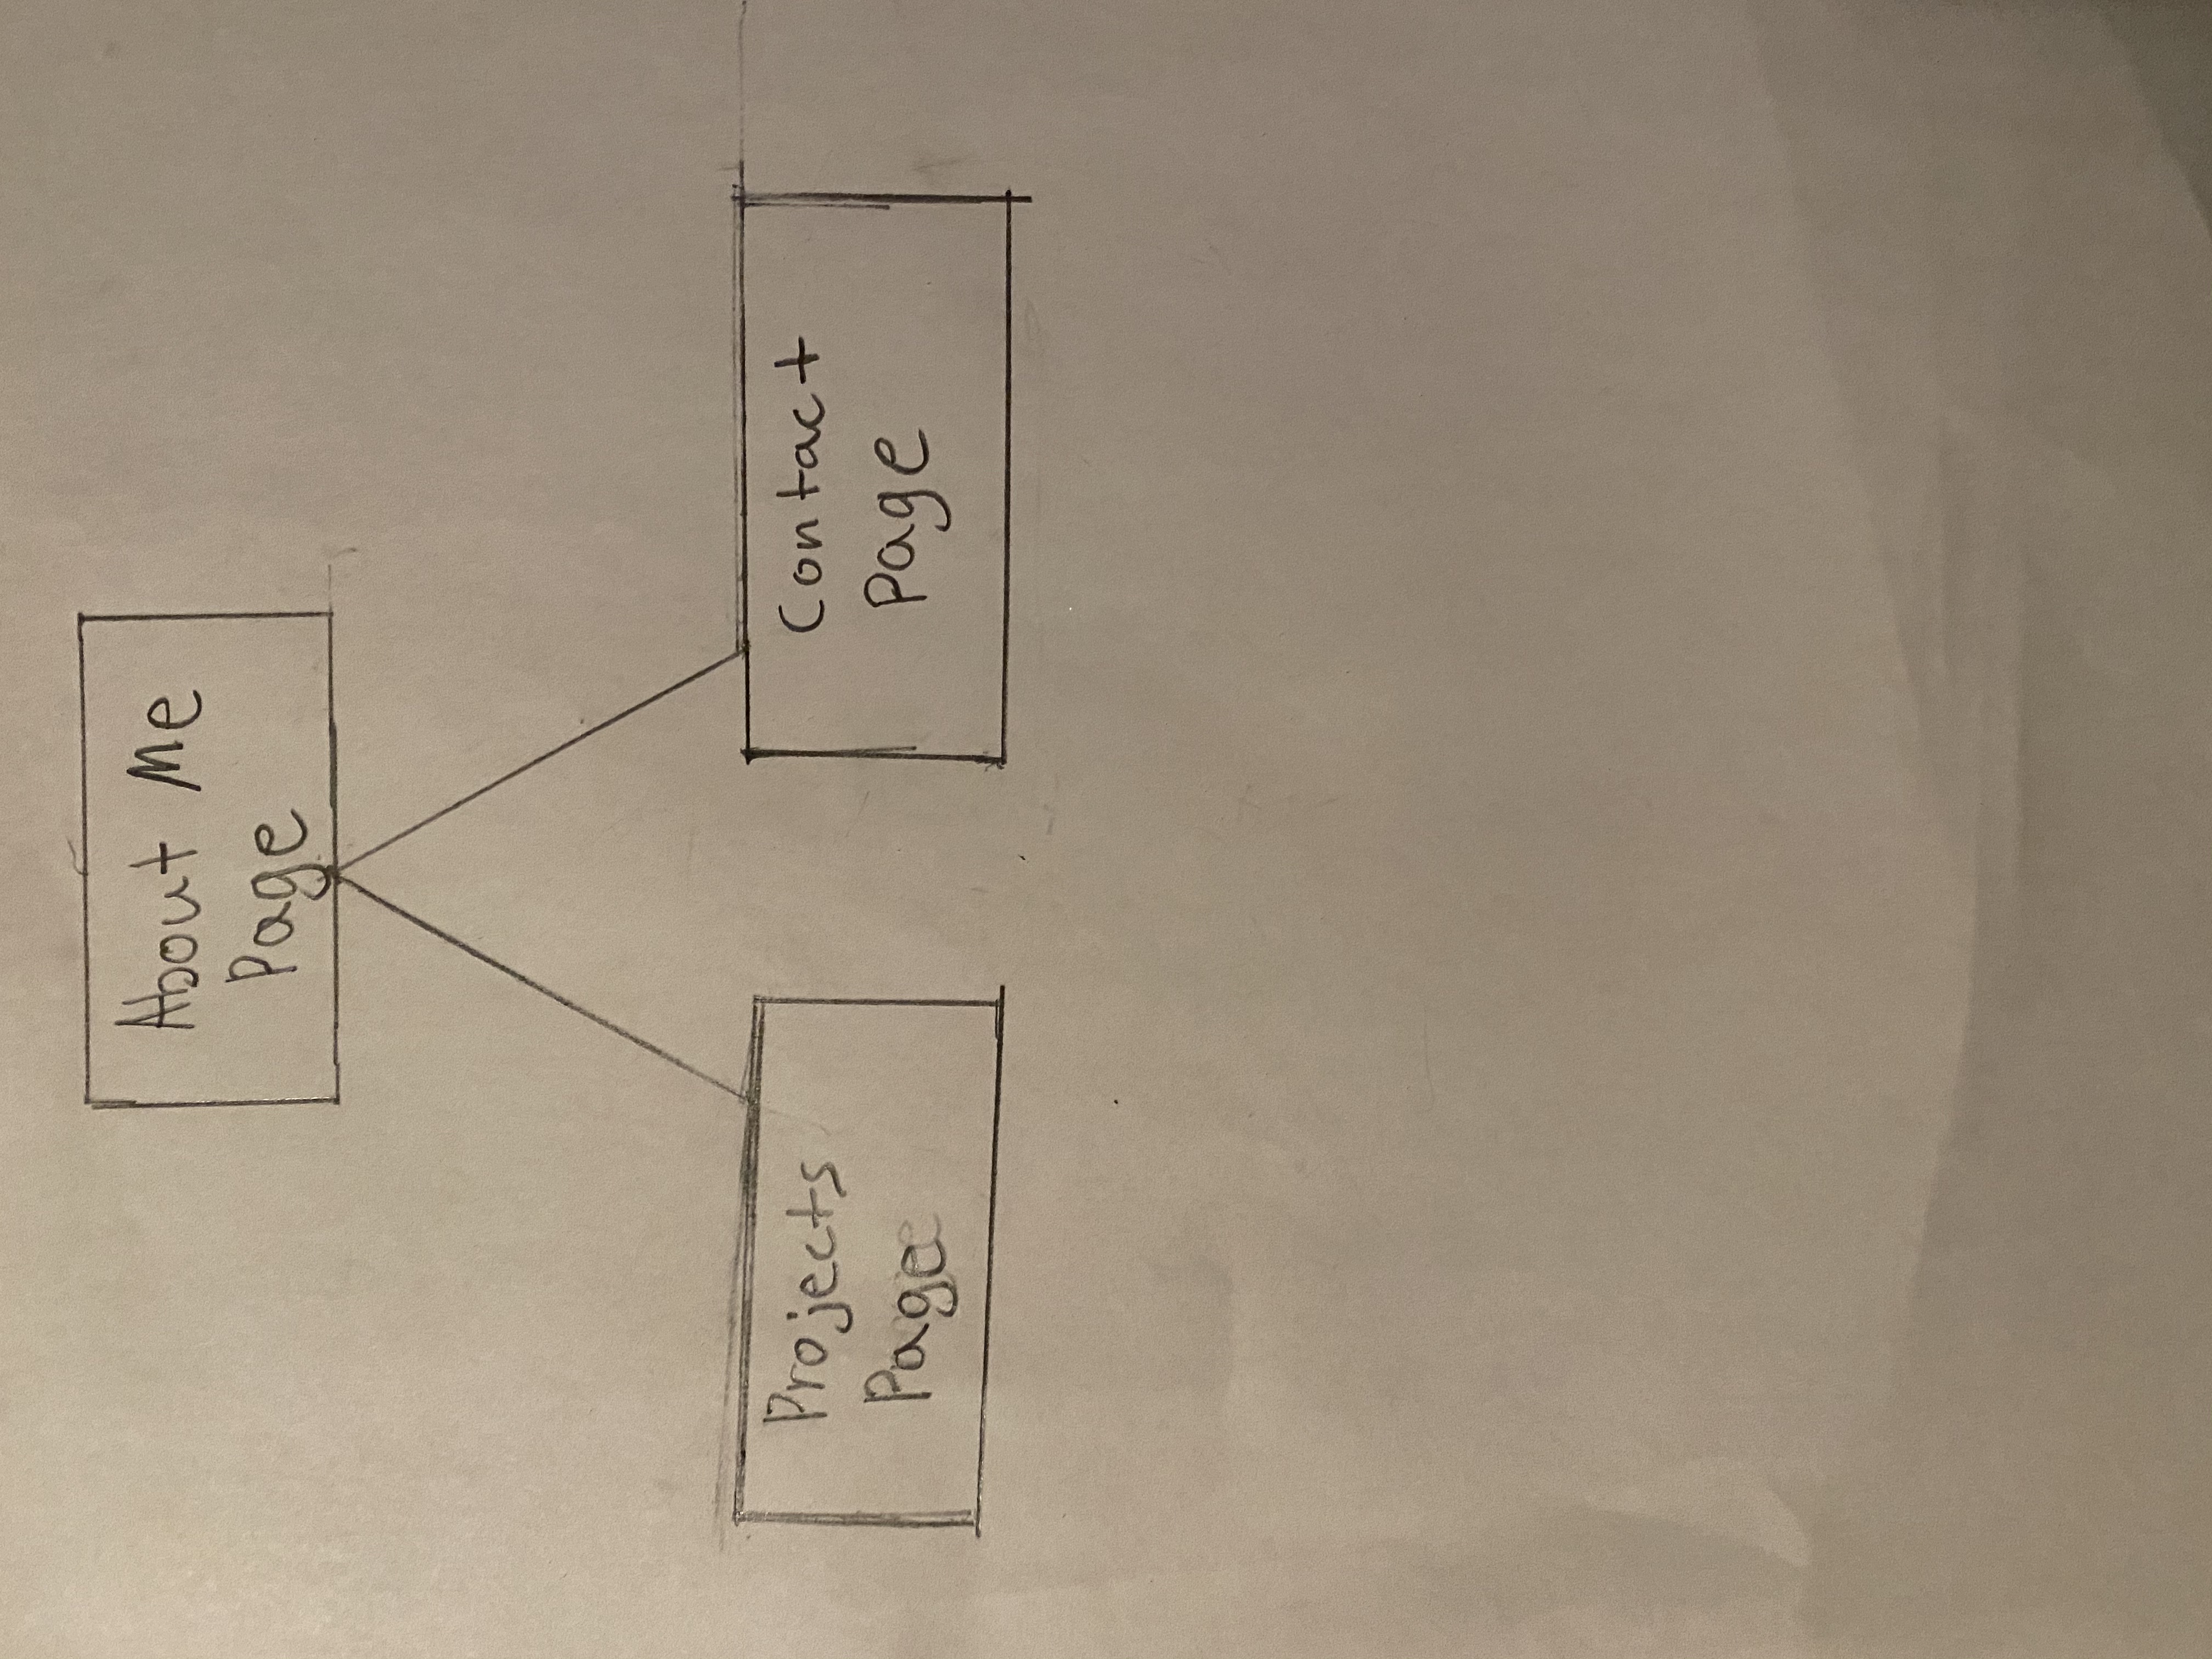 About Me
Page
Projects
Page
Contact
Page